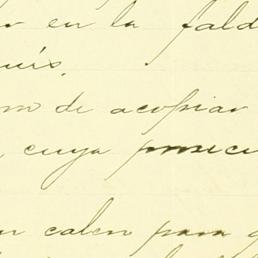 en la fald
uís.
de acopiar
, cuya prosecu
calen para q